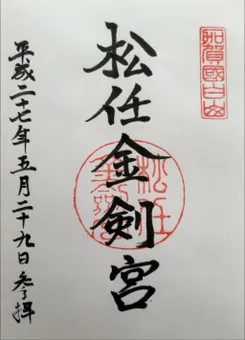 加賀國白山
松任金剣宮
松任金剣宮
平成二十七年五月二十九日参拝